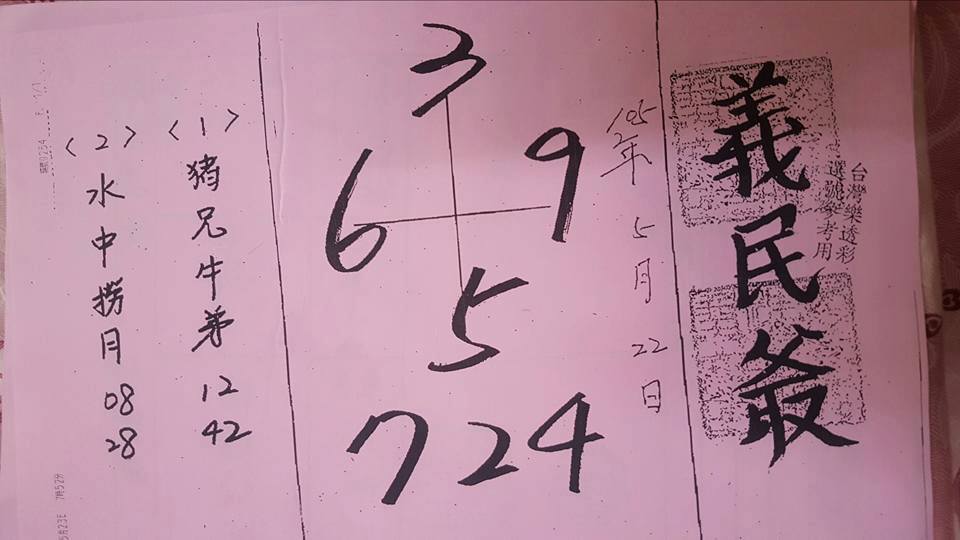 義民爺
台灣樂透彩
選號參考用
105年5月22日
3
6 9
5
724
〈1〉豬兄牛弟 12 42
〈2〉水中撈月 08 28